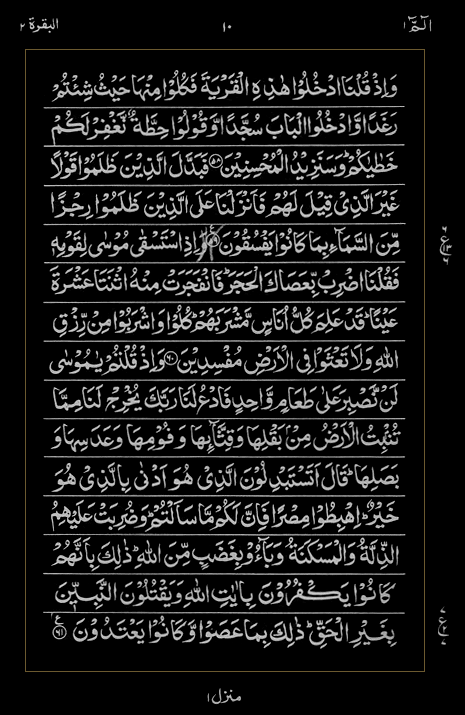 الٓمّٓ ١
١٠
البقرة ٢
وَاِذْ قُلْنَا ادْخُلُوْا هٰذِهِ الْقَرْيَةَ فَكُلُوْا مِنْهَا حَيْثُ شِئْتُمْ
رَغَدًا وَّادْخُلُوا الْبَابَ سُجَّدًا وَّقُوْلُوْا حِطَّةٌ نَّغْفِرْ لَكُمْ
خَطٰيٰكُمْ ؕ وَسَنَزِيْدُ الْمُحْسِنِيْنَ ﴿۵۸﴾ فَبَدَّلَ الَّذِيْنَ ظَلَمُوْا قَوْلًا
غَيْرَ الَّذِىْ قِيْلَ لَهُمْ فَاَنْزَلْنَا عَلَى الَّذِيْنَ ظَلَمُوْا رِجْزًا
مِّنَ السَّمَآءِ بِمَا كَانُوْا يَفْسُقُوْنَ ﴿۵۹﴾ وَاِذِ اسْتَسْقٰى مُوْسٰى لِقَوْمِهٖ
فَقُلْنَا اضْرِبْ بِّعَصَاكَ الْحَجَرَ ؕ فَانْفَجَرَتْ مِنْهُ اثْنَتَا عَشْرَةَ
عَيْنًا ؕ قَدْ عَلِمَ كُلُّ اُنَاسٍ مَّشْرَبَهُمْ ؕ كُلُوْا وَاشْرَبُوْا مِنْ رِّزْقِ
اللّٰهِ وَلَا تَعْثَوْا فِى الْاَرْضِ مُفْسِدِيْنَ ﴿۶۰﴾ وَاِذْ قُلْتُمْ يٰمُوْسٰى
لَنْ نَّصْبِرَ عَلٰى طَعَامٍ وَّاحِدٍ فَادْعُ لَنَا رَبَّكَ يُخْرِجْ لَنَا مِمَّا
تُنْۢبِتُ الْاَرْضُ مِنْۢ بَقْلِهَا وَقِثَّآئِهَا وَفُوْمِهَا وَعَدَسِهَا وَ
بَصَلِهَا ؕ قَالَ اَتَسْتَبْدِلُوْنَ الَّذِىْ هُوَ اَدْنٰى بِالَّذِىْ هُوَ
خَيْرٌ ؕ اِهْبِطُوْا مِصْرًا فَاِنَّ لَكُمْ مَّا سَاَلْتُمْ ؕ وَضُرِبَتْ عَلَيْهِمُ
الذِّلَّةُ وَالْمَسْكَنَةُ وَبَآءُوْ بِغَضَبٍ مِّنَ اللّٰهِ ؕ ذٰلِكَ بِاَنَّهُمْ
كَانُوْا يَكْفُرُوْنَ بِاٰيٰتِ اللّٰهِ وَيَقْتُلُوْنَ النَّبِيّٖنَ
بِغَيْرِ الْحَقِّ ؕ ذٰلِكَ بِمَا عَصَوْا وَّكَانُوْا يَعْتَدُوْنَ ﴿۶۱﴾
منزل ١